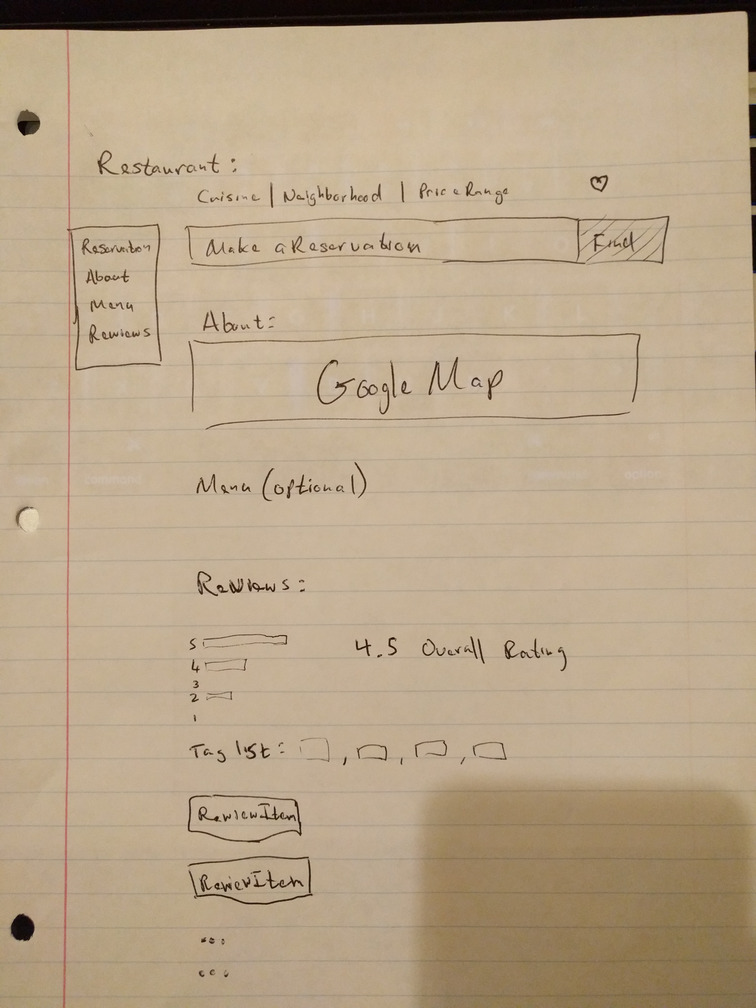 Restaurant:
Cuisine | Neighborhood | Price Range
Reservation
About
Menu
Reviews
Make a Reservation
Find
About:
Google Map
Menu (optional)
Reviews:
5
4
3
2
1
4.5 Overall Rating
Tag list: , , ,
ReviewItem
ReviewItem
...
...